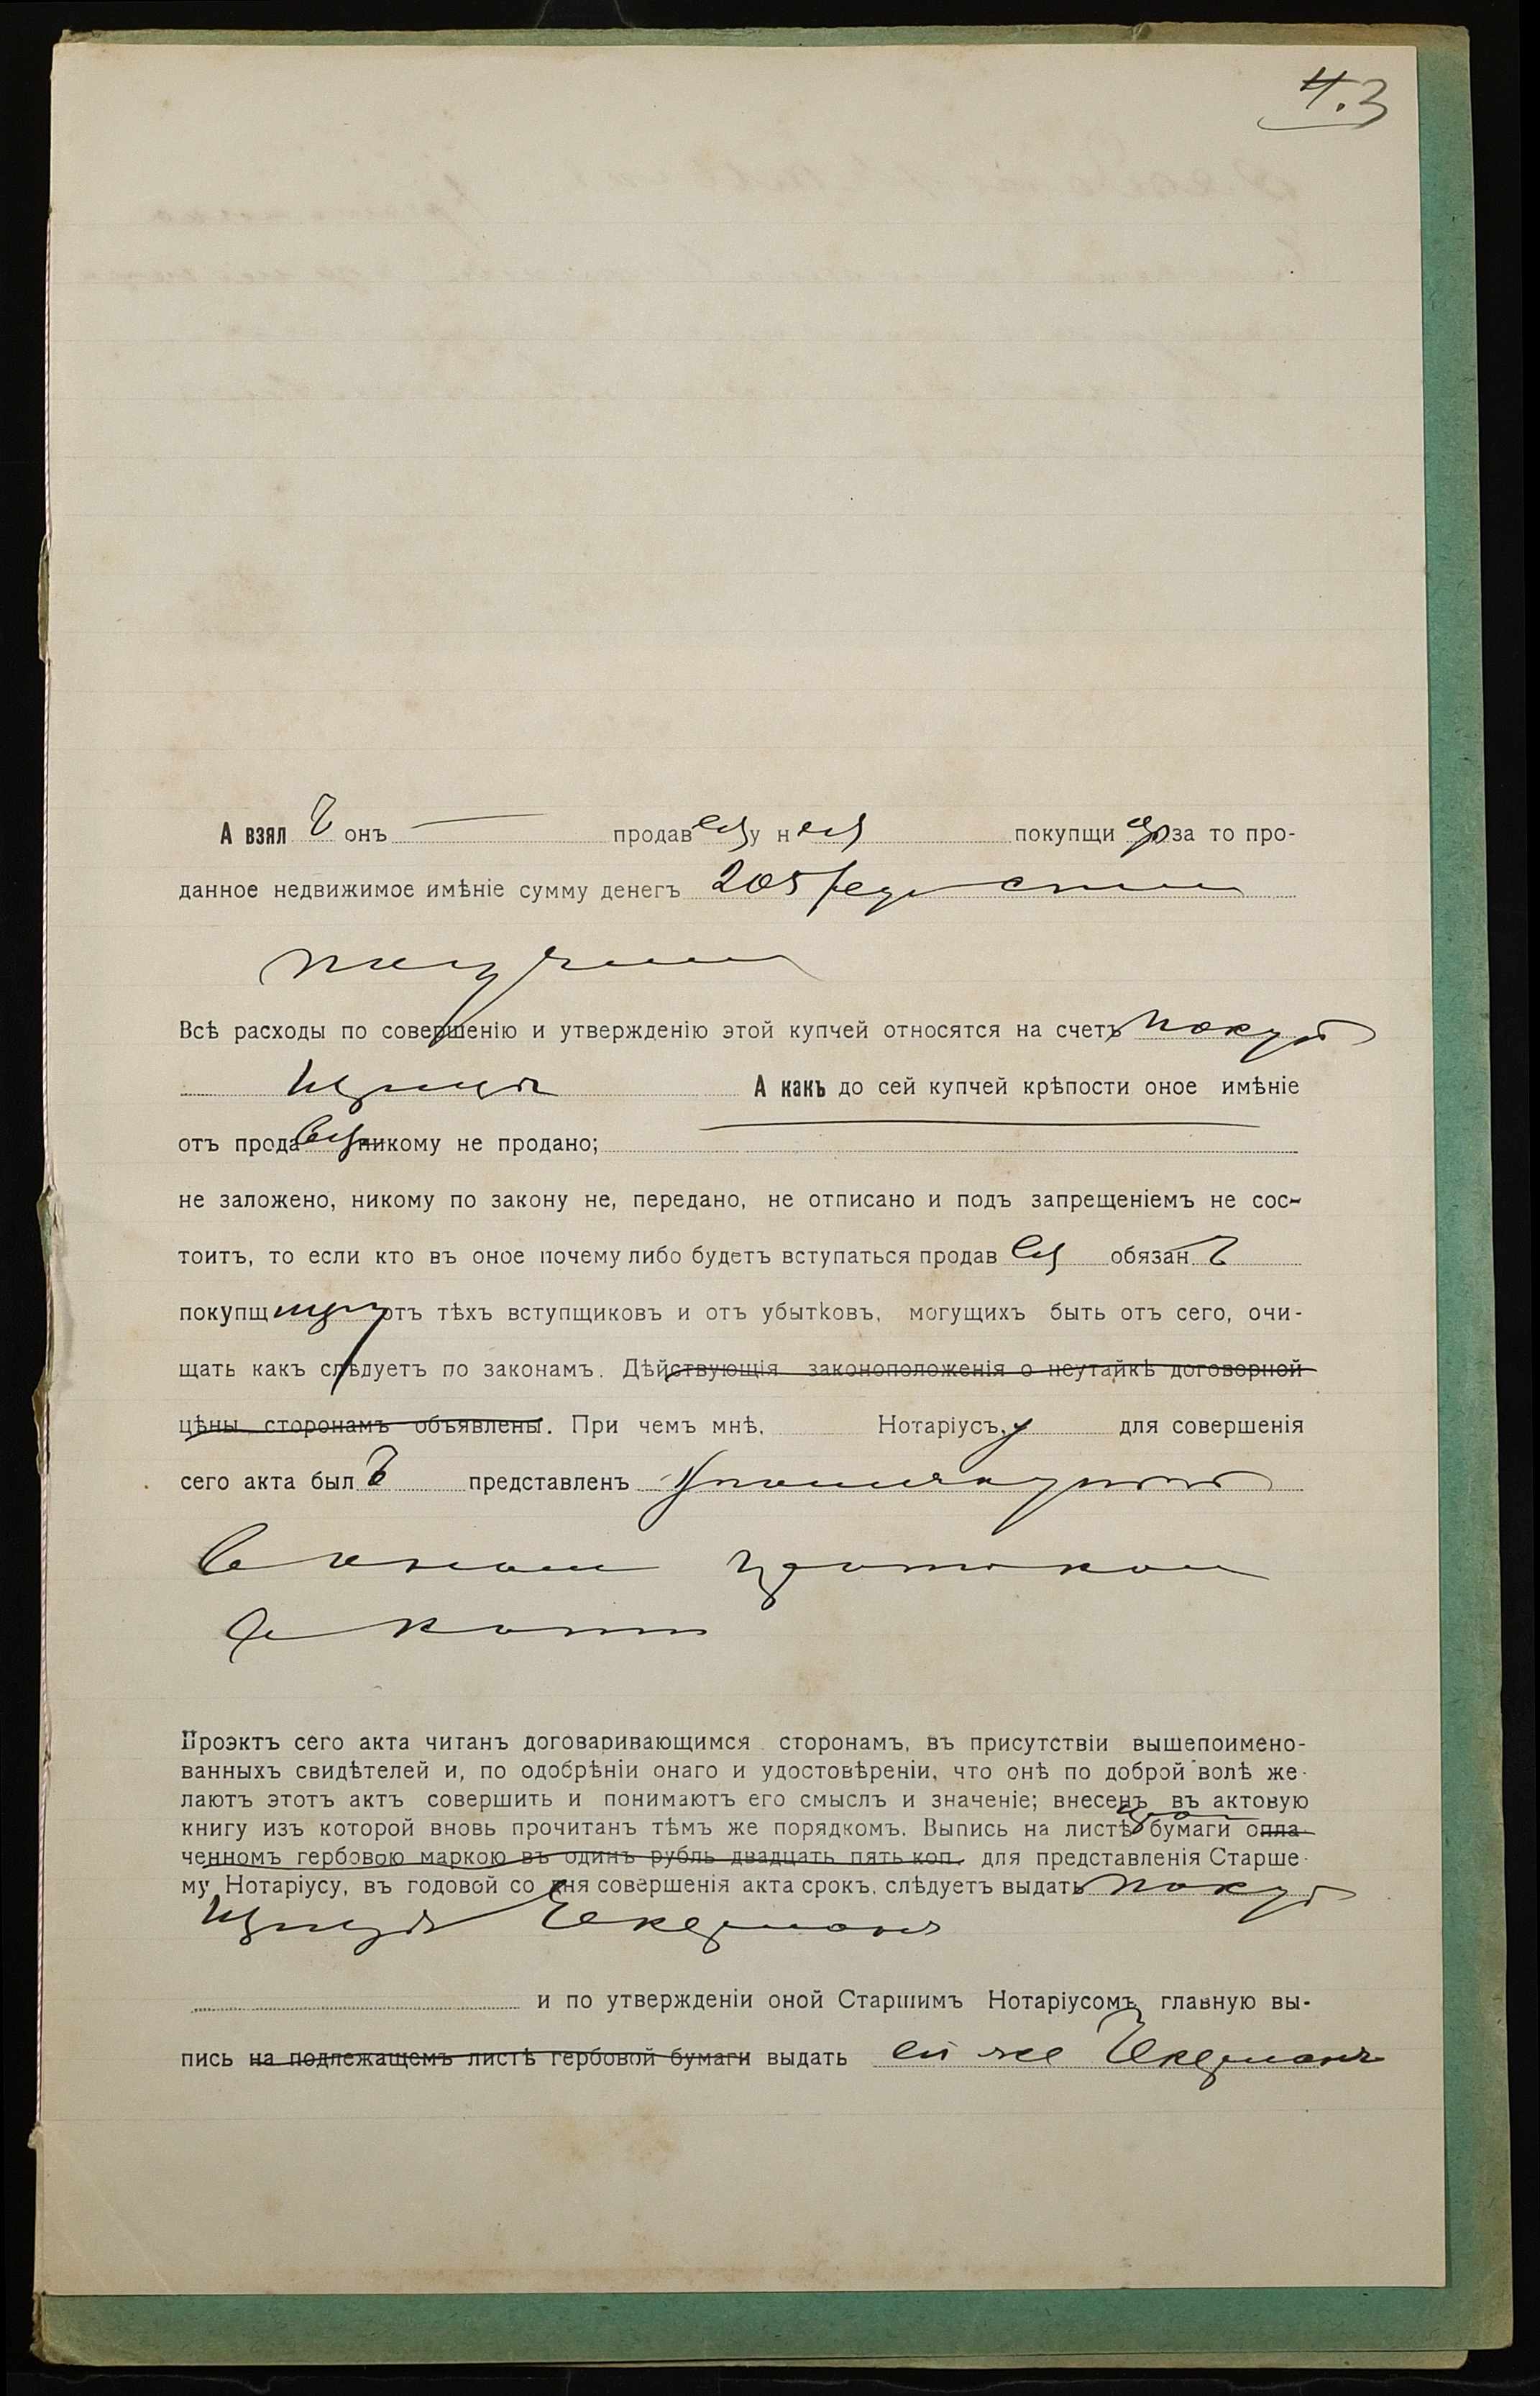 4.3
А взялъ онъ — продавецъ у нея покупщицы за то про-
данное недвижимое имѣніе сумму денегъ 205
получилъ
Всѣ расходы по совершенію и утвержденію этой купчей относятся на счетъ покуп
щицы А какъ до сей купчей крѣпости оное имѣніе
отъ продавца никому не продано;
не заложено, никому по закону не, передано, не отписано и подъ запрещеніемъ не сос-
тоитъ, то если кто въ оное почему либо будетъ вступаться продавец обязан ъ
покупщицу отъ тѣхъ вступщиковъ и отъ убытковъ, могущихъ быть отъ сего, очи-
щать какъ слѣдуетъ по законамъ. Дѣйствующія законоположенія о неутайкѣ договорной
цѣны сторонамъ объявлены. При чемъ мнѣ, Нотаріусъ, у для совершенія
сего акта былъ представленъ
Проэктъ сего акта читанъ договаривающимся сторонамъ, въ присутствіи вышепоимено-
ванныхъ свидѣтелей и, по одобрѣніи онаго и удостовѣреніи, что онѣ по доброй волѣ же-
лаютъ этотъ актъ совершить и понимаютъ его смыслъ и значеніе; внесенъ въ актовую
книгу изъ которой вновь прочитанъ тѣмъ же порядкомъ. Выпись на листѣ бумаги опла-
ченномъ гербовою маркою въ одинъ рубль двадцать пять коп. для представленія Старше-
му Нотаріусу, въ годовой со дня совершенія акта срокъ, слѣдуетъ выдать покуп
щицѣ
и по утвержденіи оной Старшимъ Нотаріусомъ главную вы-
пись на подлежащемъ листѣ гербовой бумаги выдать ей же